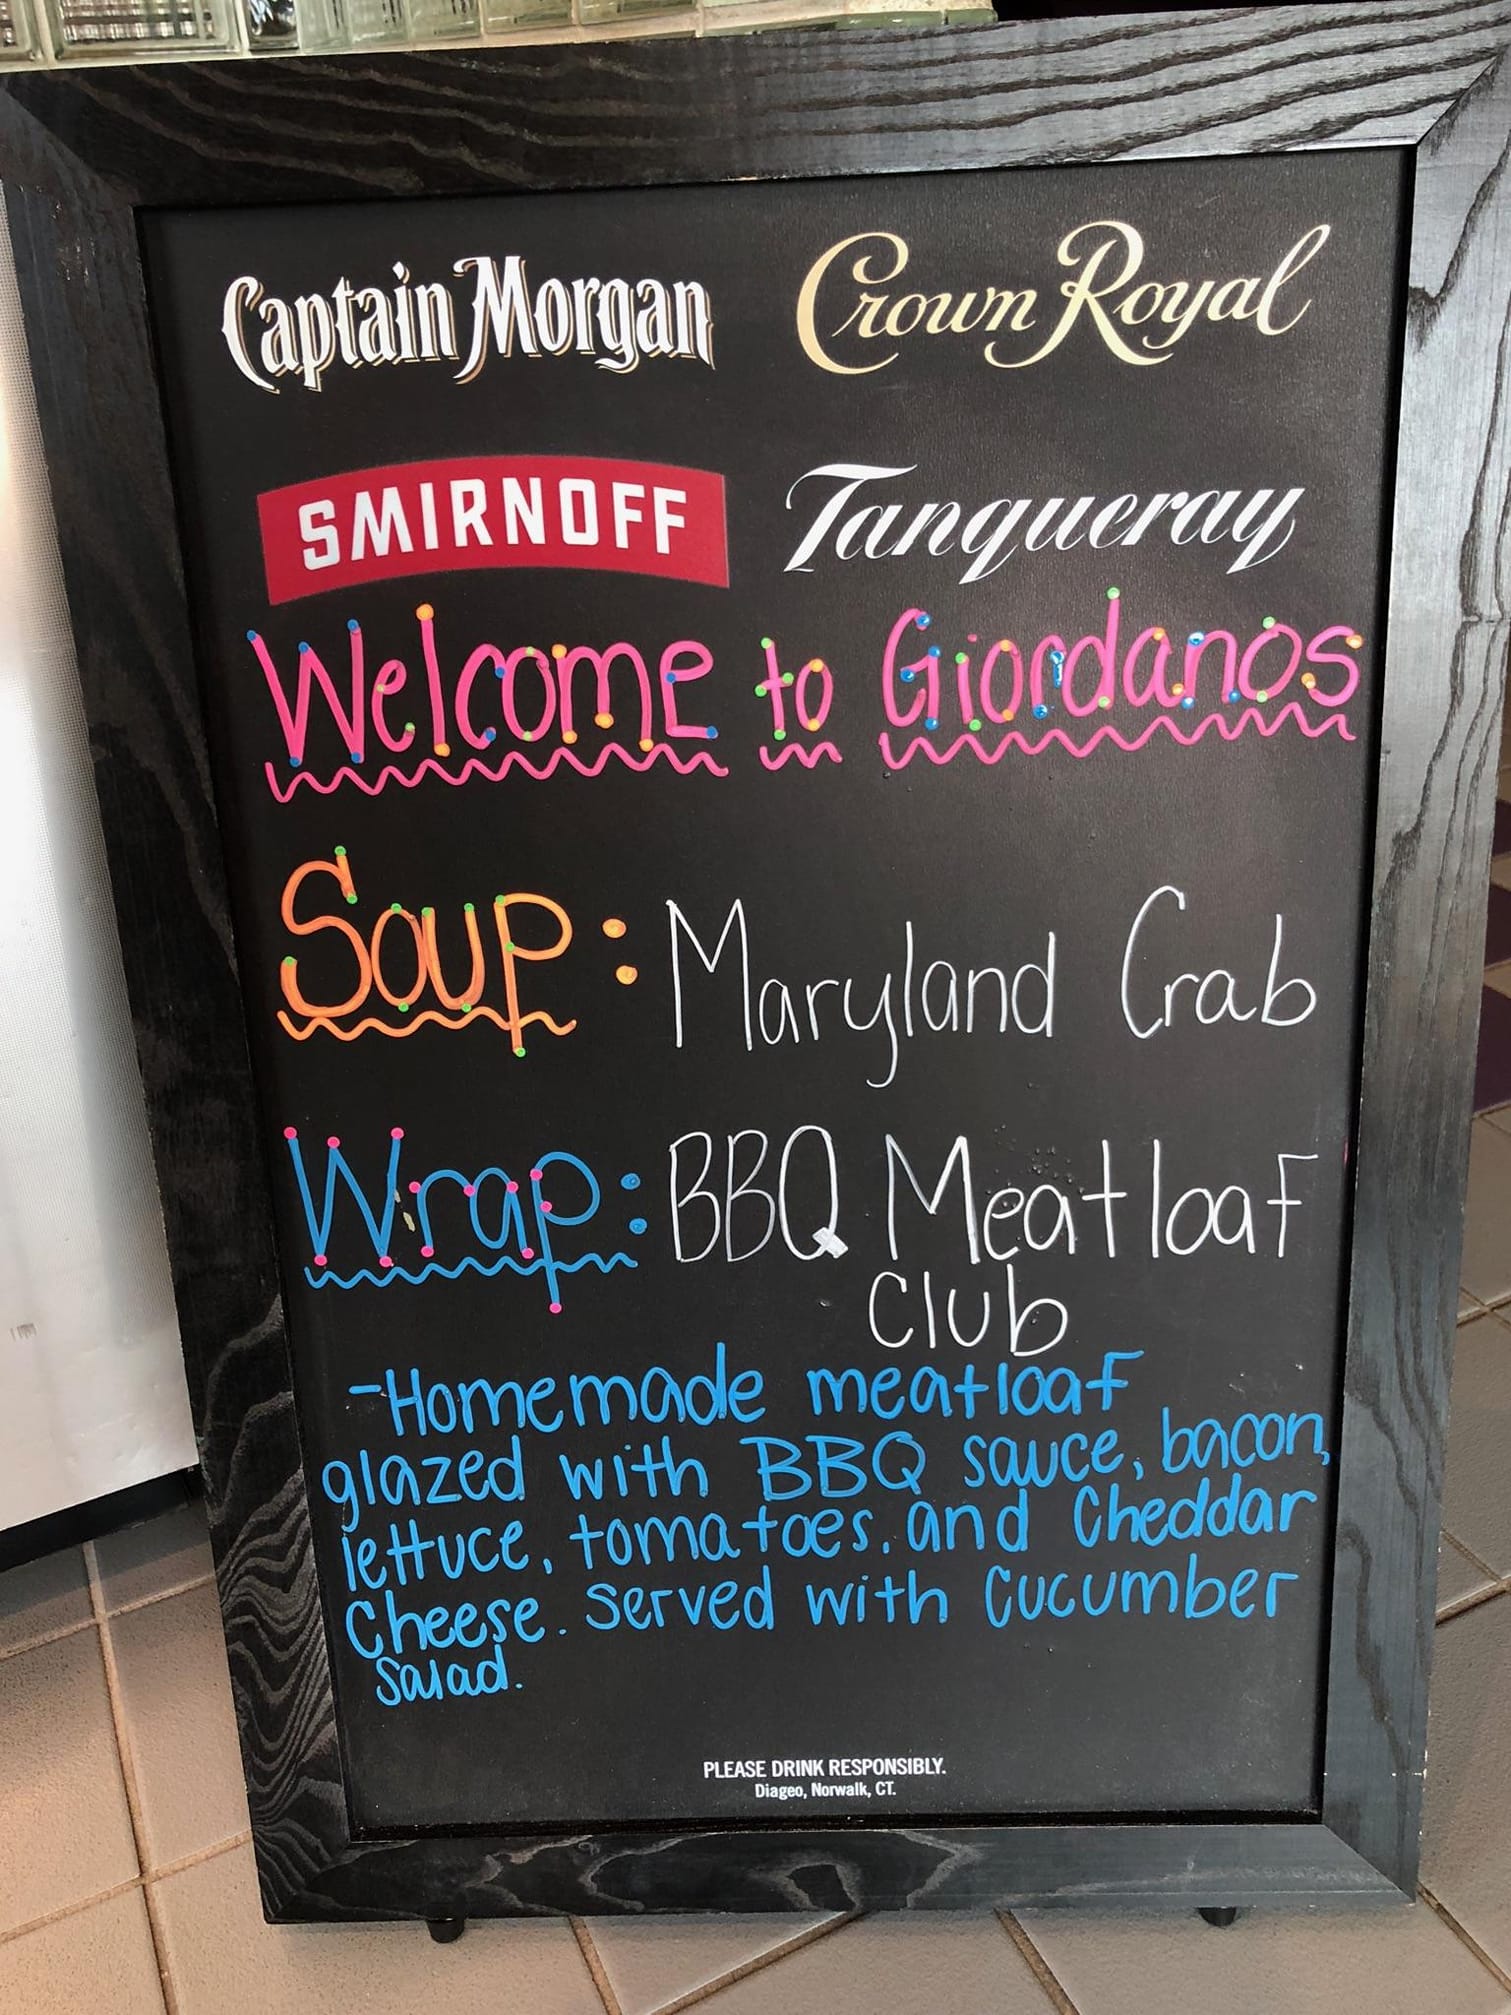 Captain Morgan Crown Royal
SMIRNOFF Tanqueray
Welcome to Giordanos
Soup: Maryland Crab
Wrap: BBQ Meatloaf
Club
-Homemade meatloaf
glazed with BBQ sauce, bacon,
lettuce, tomatoes, and Cheddar
Cheese. Served with Cucumber
Salad.
PLEASE DRINK RESPONSIBLY.
Diageo, Norwalk, CT.